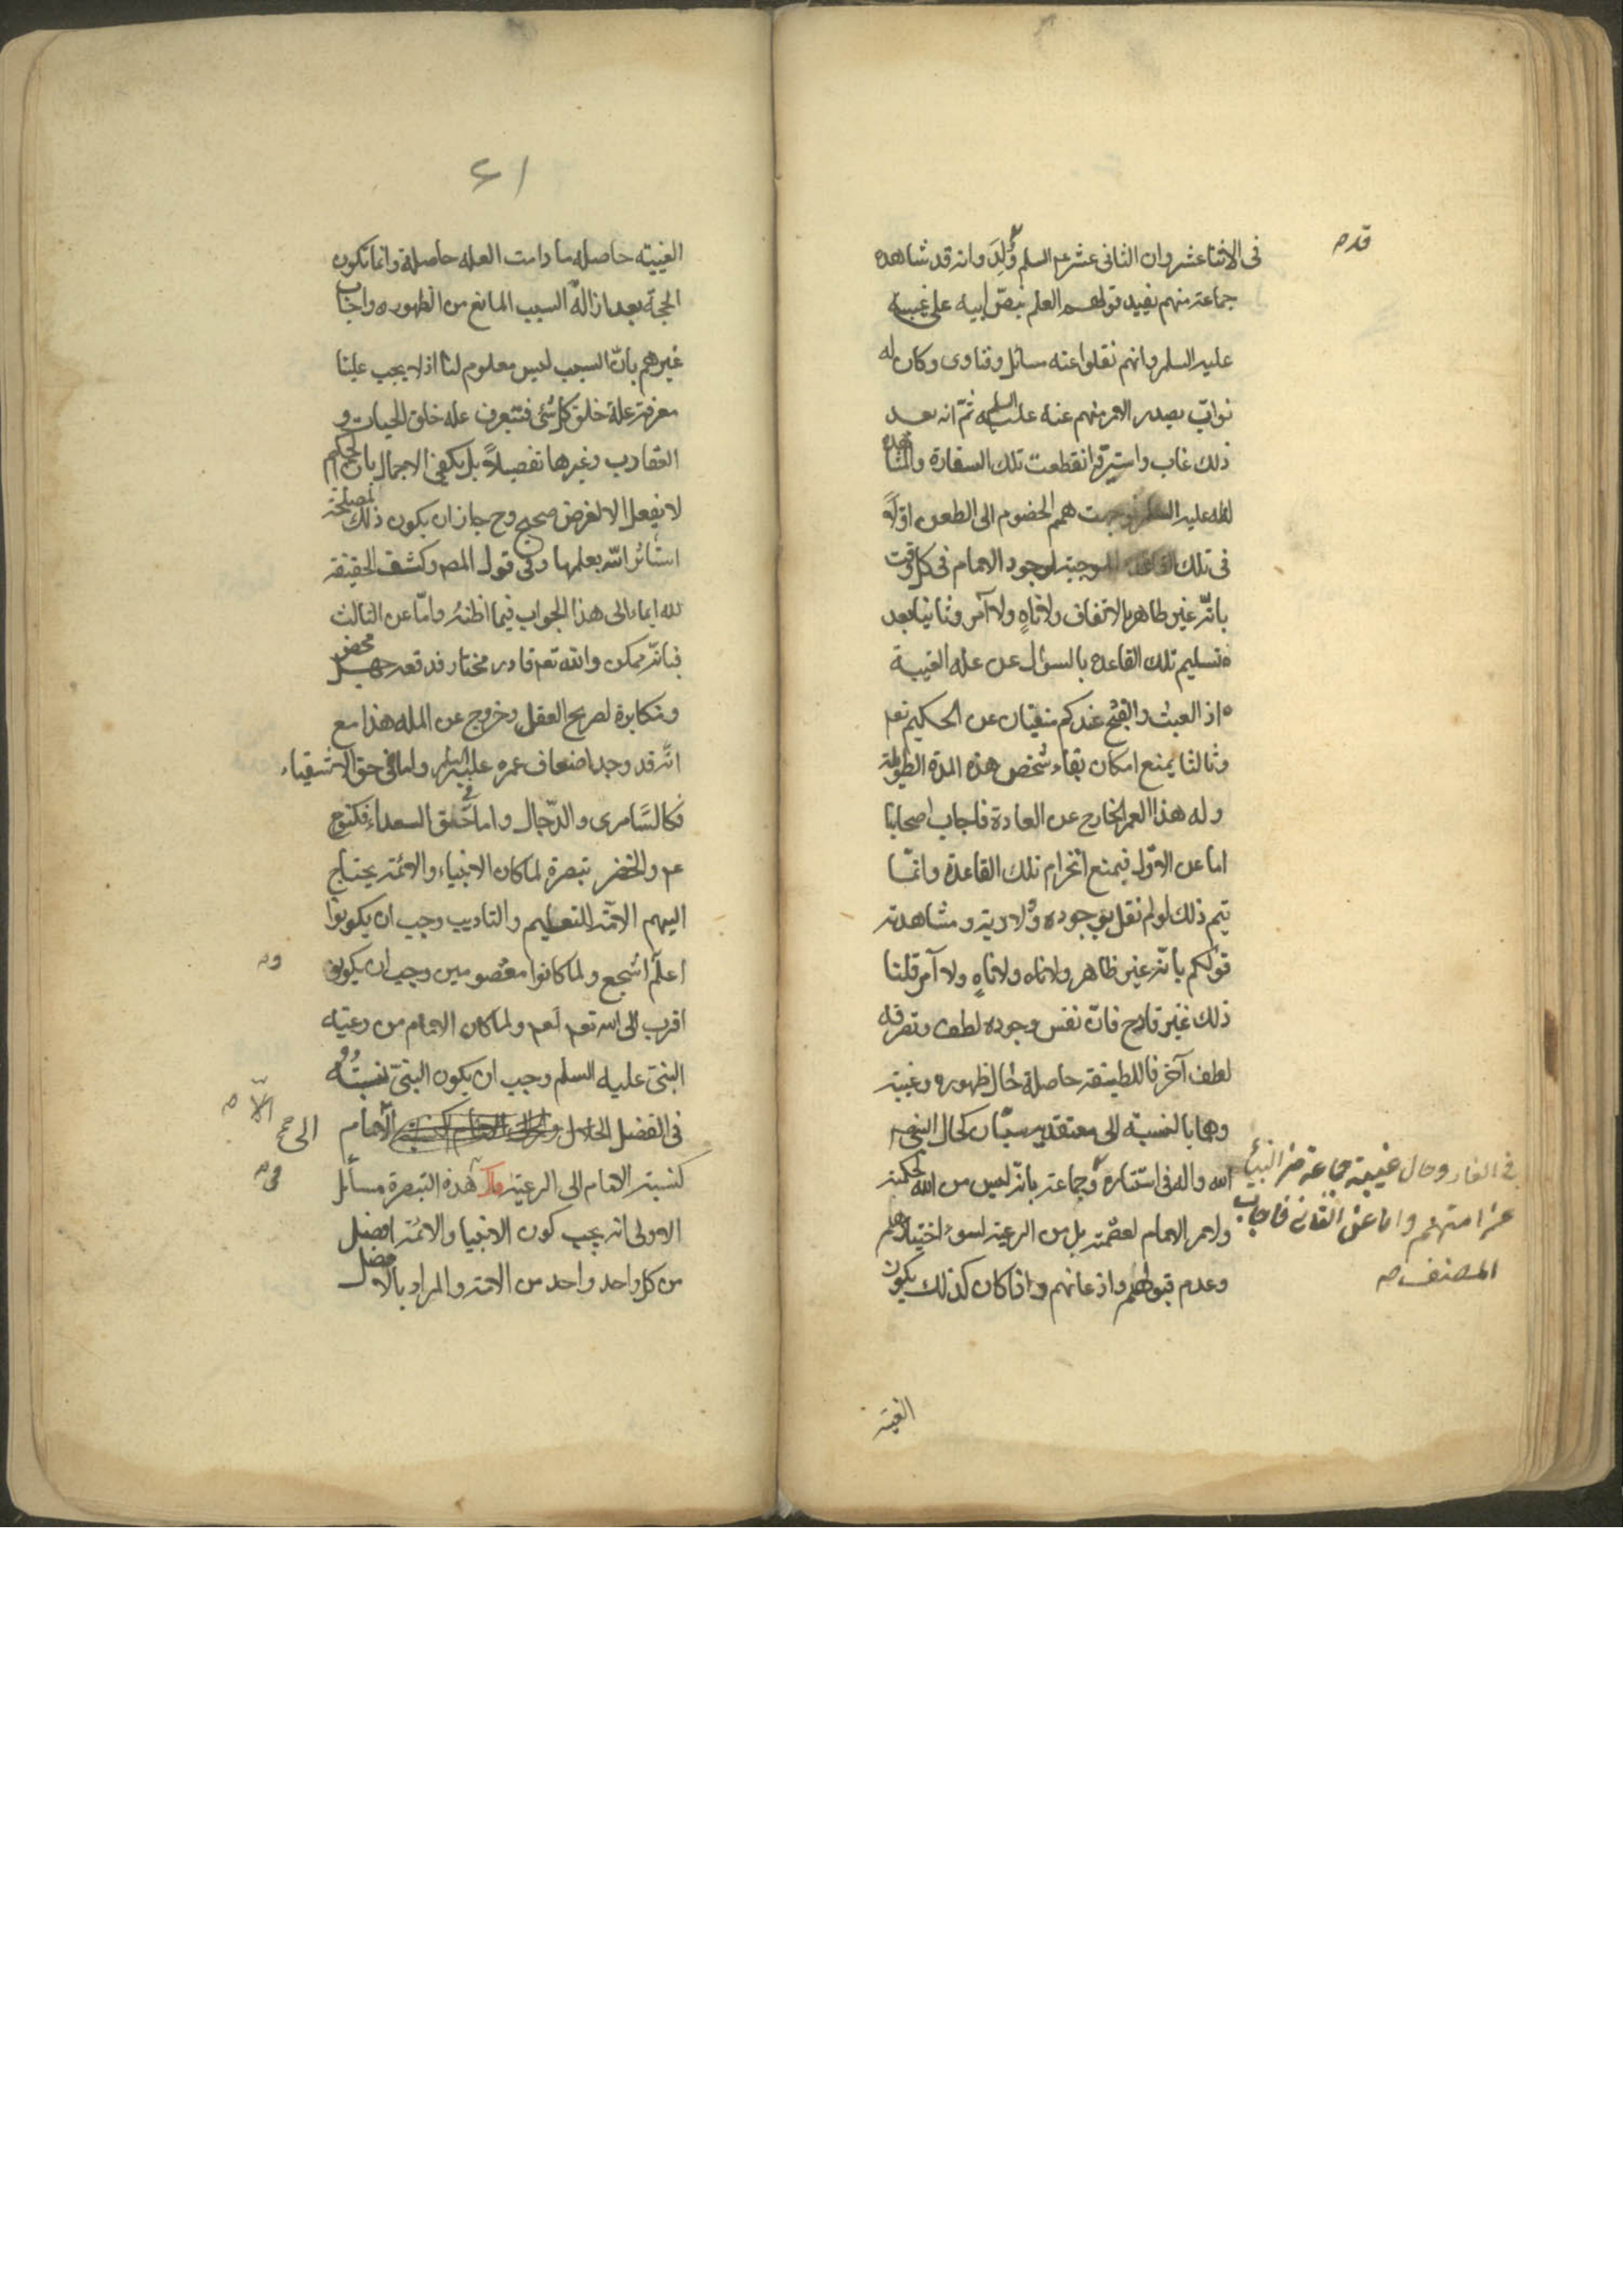 قد ص
فى الاثنا عشر وان الثانى عشر عليه السلم وُلِدَ وانه قد شاهده
جماعة منهم يفيد قولهم العلم بنص ابيه على غيبه
عليه السلم وانهم نقلوا عنه مسائل وفتاوى وكان له
نواب يصدر الامر منهم عنه عليه السلم ثمّ انه بعد
ذلك غاب واستتر فانقطعت تلك السفارة والمشاهدة
له عليه السلم توجهت همم الخصوم الى الطعن اوّلاً
فى تلك القاعدة الموجبة لوجود الامام فى كل وقت
بانّه غير ظاهر بالاتفاق ولا ناهٍ ولا آمر وثانيا بعد
تسليم تلك القاعدة بالسؤال عن علة الغيبة
اذ العبث والقبح عندكم منفيان عن الحكيم تعم
وثالثا يمنع امكان بقاء شخص هذه المدة الطويلة
وله هذا العمر الخارج عن العادة فاجاب اصحابنا
اما عن الاوّل فبمنع انخرام تلك القاعدة وانمّا
يتم ذلك لو لم نقل بوجوده وولادته ومشاهدته
قولكم بانّه غير ظاهر ولاناه ولا ناهٍ ولا آمر قلنا
ذلك غير قادح فانّ نفس وجوده لطف وتصرفه
لطف آخر فاللطيفة حاصلة حال ظهوره وغيبته
وهما بالنسبة الى معتقديه سيّان كحال النبى صلى
الله واله فى استتاره وجماعة بانّه ليس من الله لحكمته
ولامر الامام لعصمته بل من الرعية لسوء اختيارهم
وعدم قبولهم واذعانهم واذا كان كذلك يكون
فى الغار وحال غيبة جماعة من الانبياء
عن امتهم واما عن الثانى فاجاب
المصنف ص
الغيبة
٤١
الغيبته حاصله ما دامت العله حاصلة وانما تكون
الحجة بعد ازالة السبب المانع من الظهور ه واجاب
غيرهم بانّ السبب ليس معلوم لنا اذ لا يجب علينا
معرفة علة خلق كل شئ فتعرف علة خلق الحيات و
العقارب وغيرها تفصيلاً بل يكفى الاجمال بان الحكيم
لا يفعل الا لغرض صحيح وح جاز ان يكون ذلك لمصلحة
استأثر الله بعلمها وفى قول المص وكشف الحقيقة
لله ايماء الى هذا الجواب فيما اظنهُ وامّا عن الثالث
فبانّه ممكن والله تعم قادر مختار فدفعه جهل محض
ومكابرة لصريح العقل وخروج عن المله هذا مع
انّه قد وجد اضعاف عمره عليه السلم واما فى حق الاشقياء
فكالسَّامرى والدّجال واما فى حّق السعداء فكنوح
عم والخضر تبصرة لما كان الانبياء والائمة يحتاج
اليهم الامّة للتعليم والتاديب وجب ان يكونوا
اعلم اشجع ولما كانوا معصومين وجب ان يكونوا
و ص
اقرب الى الله تعم ولما كان الامام من رعية
النبىّ عليه السلم وجب ان يكون النبىّ نسبتُه
الّا ص
فى الفضل الى الامام
كنسبة الامام الى الرعية هذه التبصرة مسائل
فى ص
الاولى انه يجب كون الانبيا والائمّة افضل
من كل واحد واحد من الامة والمراد بالافضل